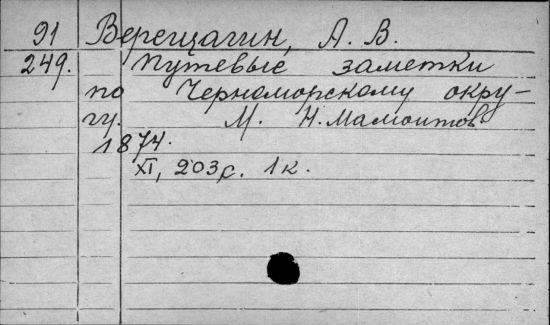 91 Верещагин, А. В.
249. Путевые заметки
по Черноморскому окру-
гу. М. Н. Мамонтов
1874.
XI, 203с. 1к.